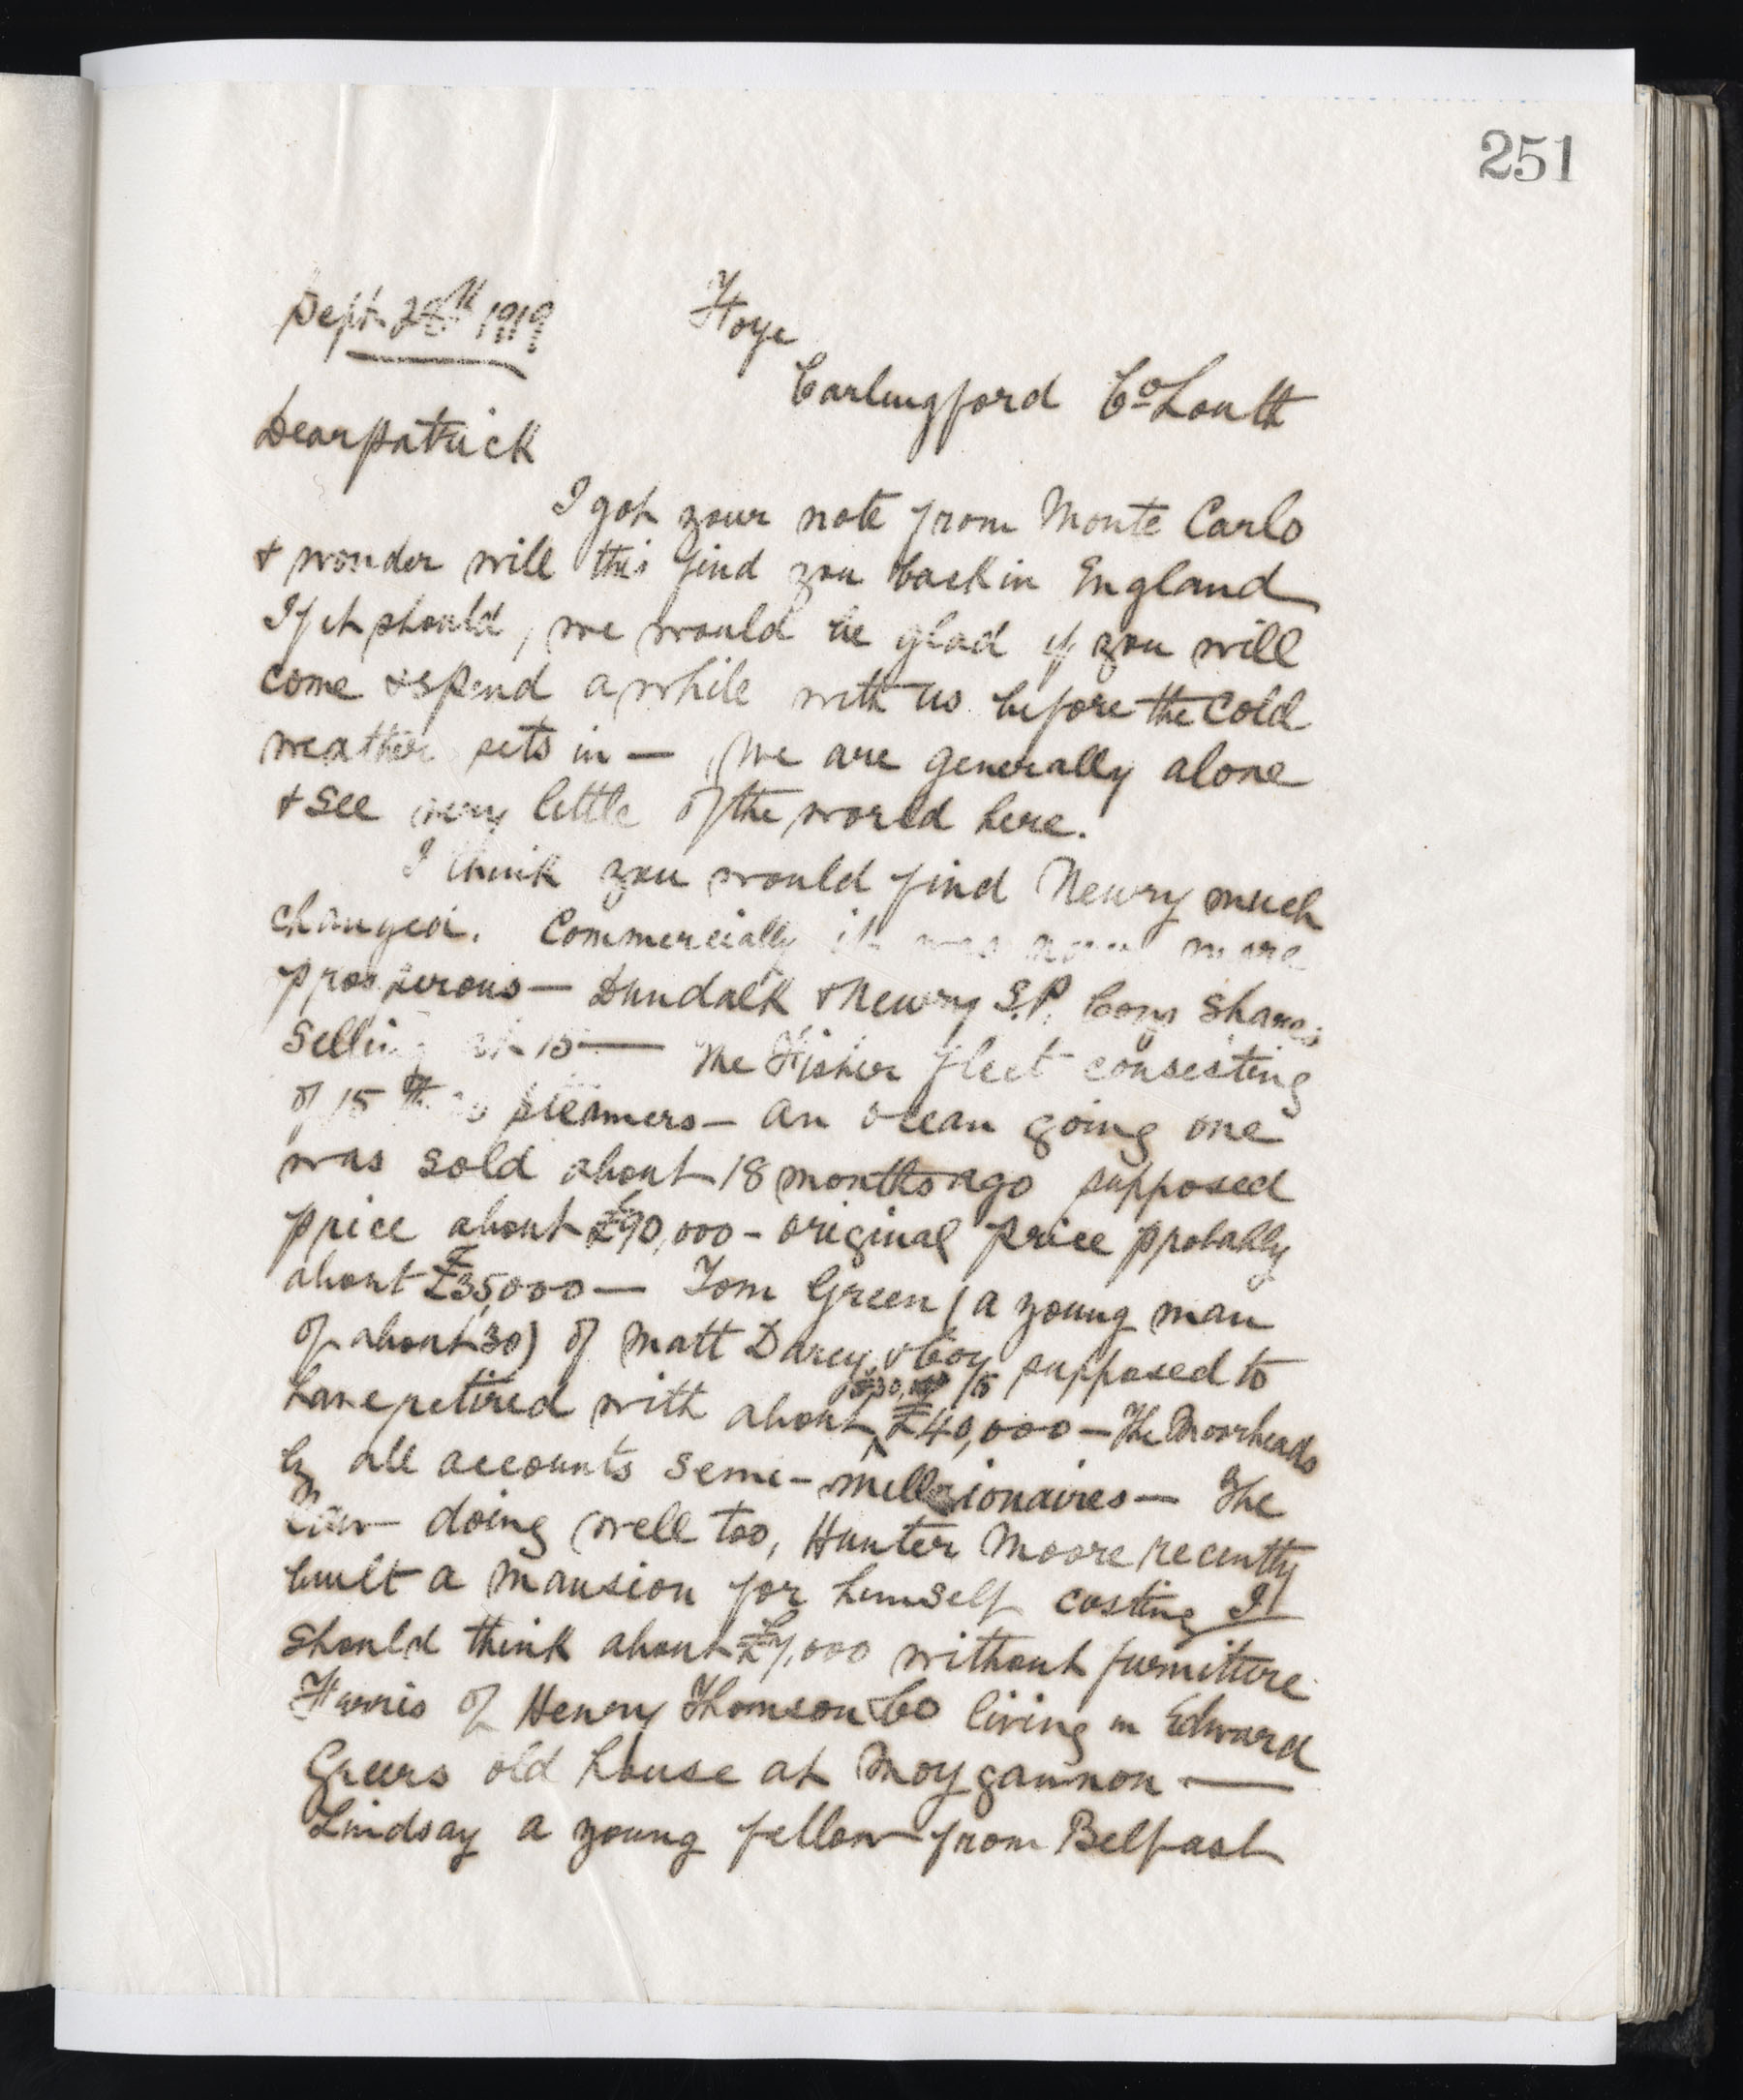 251
Sept 28th 1919 Foye
Carlingford Co Louth
Dear Patrick
I got your note from Monte Carlo
& wonder will this find you back in England
If it should, we would be glad if you will
come & spend a while with us before the cold
weather sets in — We are generally alone
& see very little of the world here.
I think you would find Newry much
changed. Commercially it was never more
prosperous — Dundalk & Newry S.P. Coys Shares
selling at 15 — The Fisher fleet consisting
of 15 steamers — an ocean going one
was sold about 18 months ago supposed
price about £90,000 - original price probably
about £35,000 — Tom Green (a young man
of about 30) of Matt Darcy & Coy supposed to
have retired with about £30,000 to £40,000 — The Moorheads
by all accounts semi-millionaires — The
law doing well too, Hunter Moore recently
built a mansion for himself costing I
should think about £7,000 without furniture
Harris of Henry Thomson Co living in Edward
Greers old house at Moygannon —
Lindsay a young fellow from Belfast